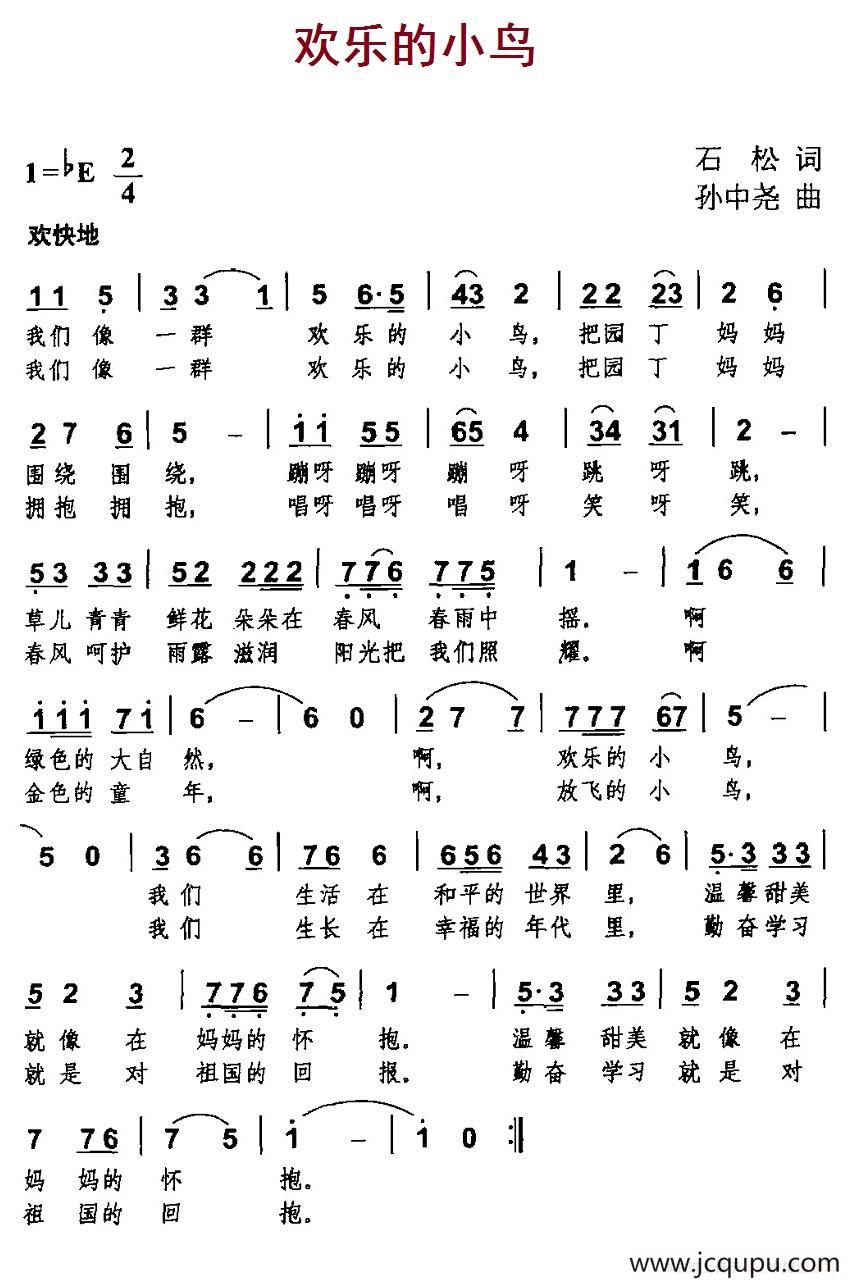 欢乐的小鸟
1=♭E 2/4
石 松 词
孙中尧 曲
欢快地
1 1 5 | 3 3 1 | 5 6·5 | 43 2 | 22 23 | 2 6 |
我们 像 一 群 欢 乐的 小 鸟, 把园 丁 妈 妈
我们 像 一 群 欢 乐的 小 鸟, 把园 丁 妈 妈
2 7 6 | 5 – | i i 55 | 65 4 | 34 31 | 2 – |
围绕 围 绕, 蹦呀 蹦呀 蹦 呀 跳 呀 跳,
拥抱 拥 抱, 唱呀 唱呀 唱 呀 笑 呀 笑,
53 33 | 52 222 | 776 775 | 1 – | 1 6 6 |
草儿 青青 鲜花 朵朵在 春风 春雨中 摇. 啊
春风 呵护 雨露 滋润 阳光把 我们照 耀. 啊
i i i 7 i | 6 – | 6 0 | 2 7 7 | 777 67 | 5 – |
绿色的 大自 然, 啊, 欢乐的 小 鸟,
金色的 童 年, 啊, 放飞的 小 鸟,
5 0 | 3 6 6 | 76 6 | 656 43 | 2 6 | 5·3 33 |
我 们 生活 在 和平的 世界 里, 温馨甜美
我 们 生长 在 幸福的 年代 里, 勤奋学习
5 2 3 | 776 75 | 1 – | 5·3 33 | 5 2 3 |
就像 在 妈妈的 怀 抱. 温馨 甜美 就像在
就是 对 祖国的 回 报. 勤奋 学习 就是对
7 76 | 7 5 | i – | i 0 :‖
妈 妈的 怀 抱.
祖 国的 回 抱.
www.jcqupu.com